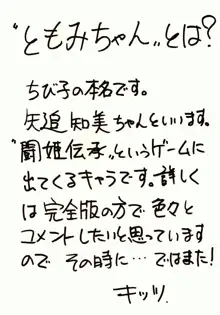 "ともみちゃん"とは?
ちび子の本名です。
矢追知美ちゃんといいます。
"闘姫伝承"というゲームに
出てくるキャラです。詳しく
は完全版の方で色々と
コメントしたいと思っています
ので その時に…ではまた!
キッツ